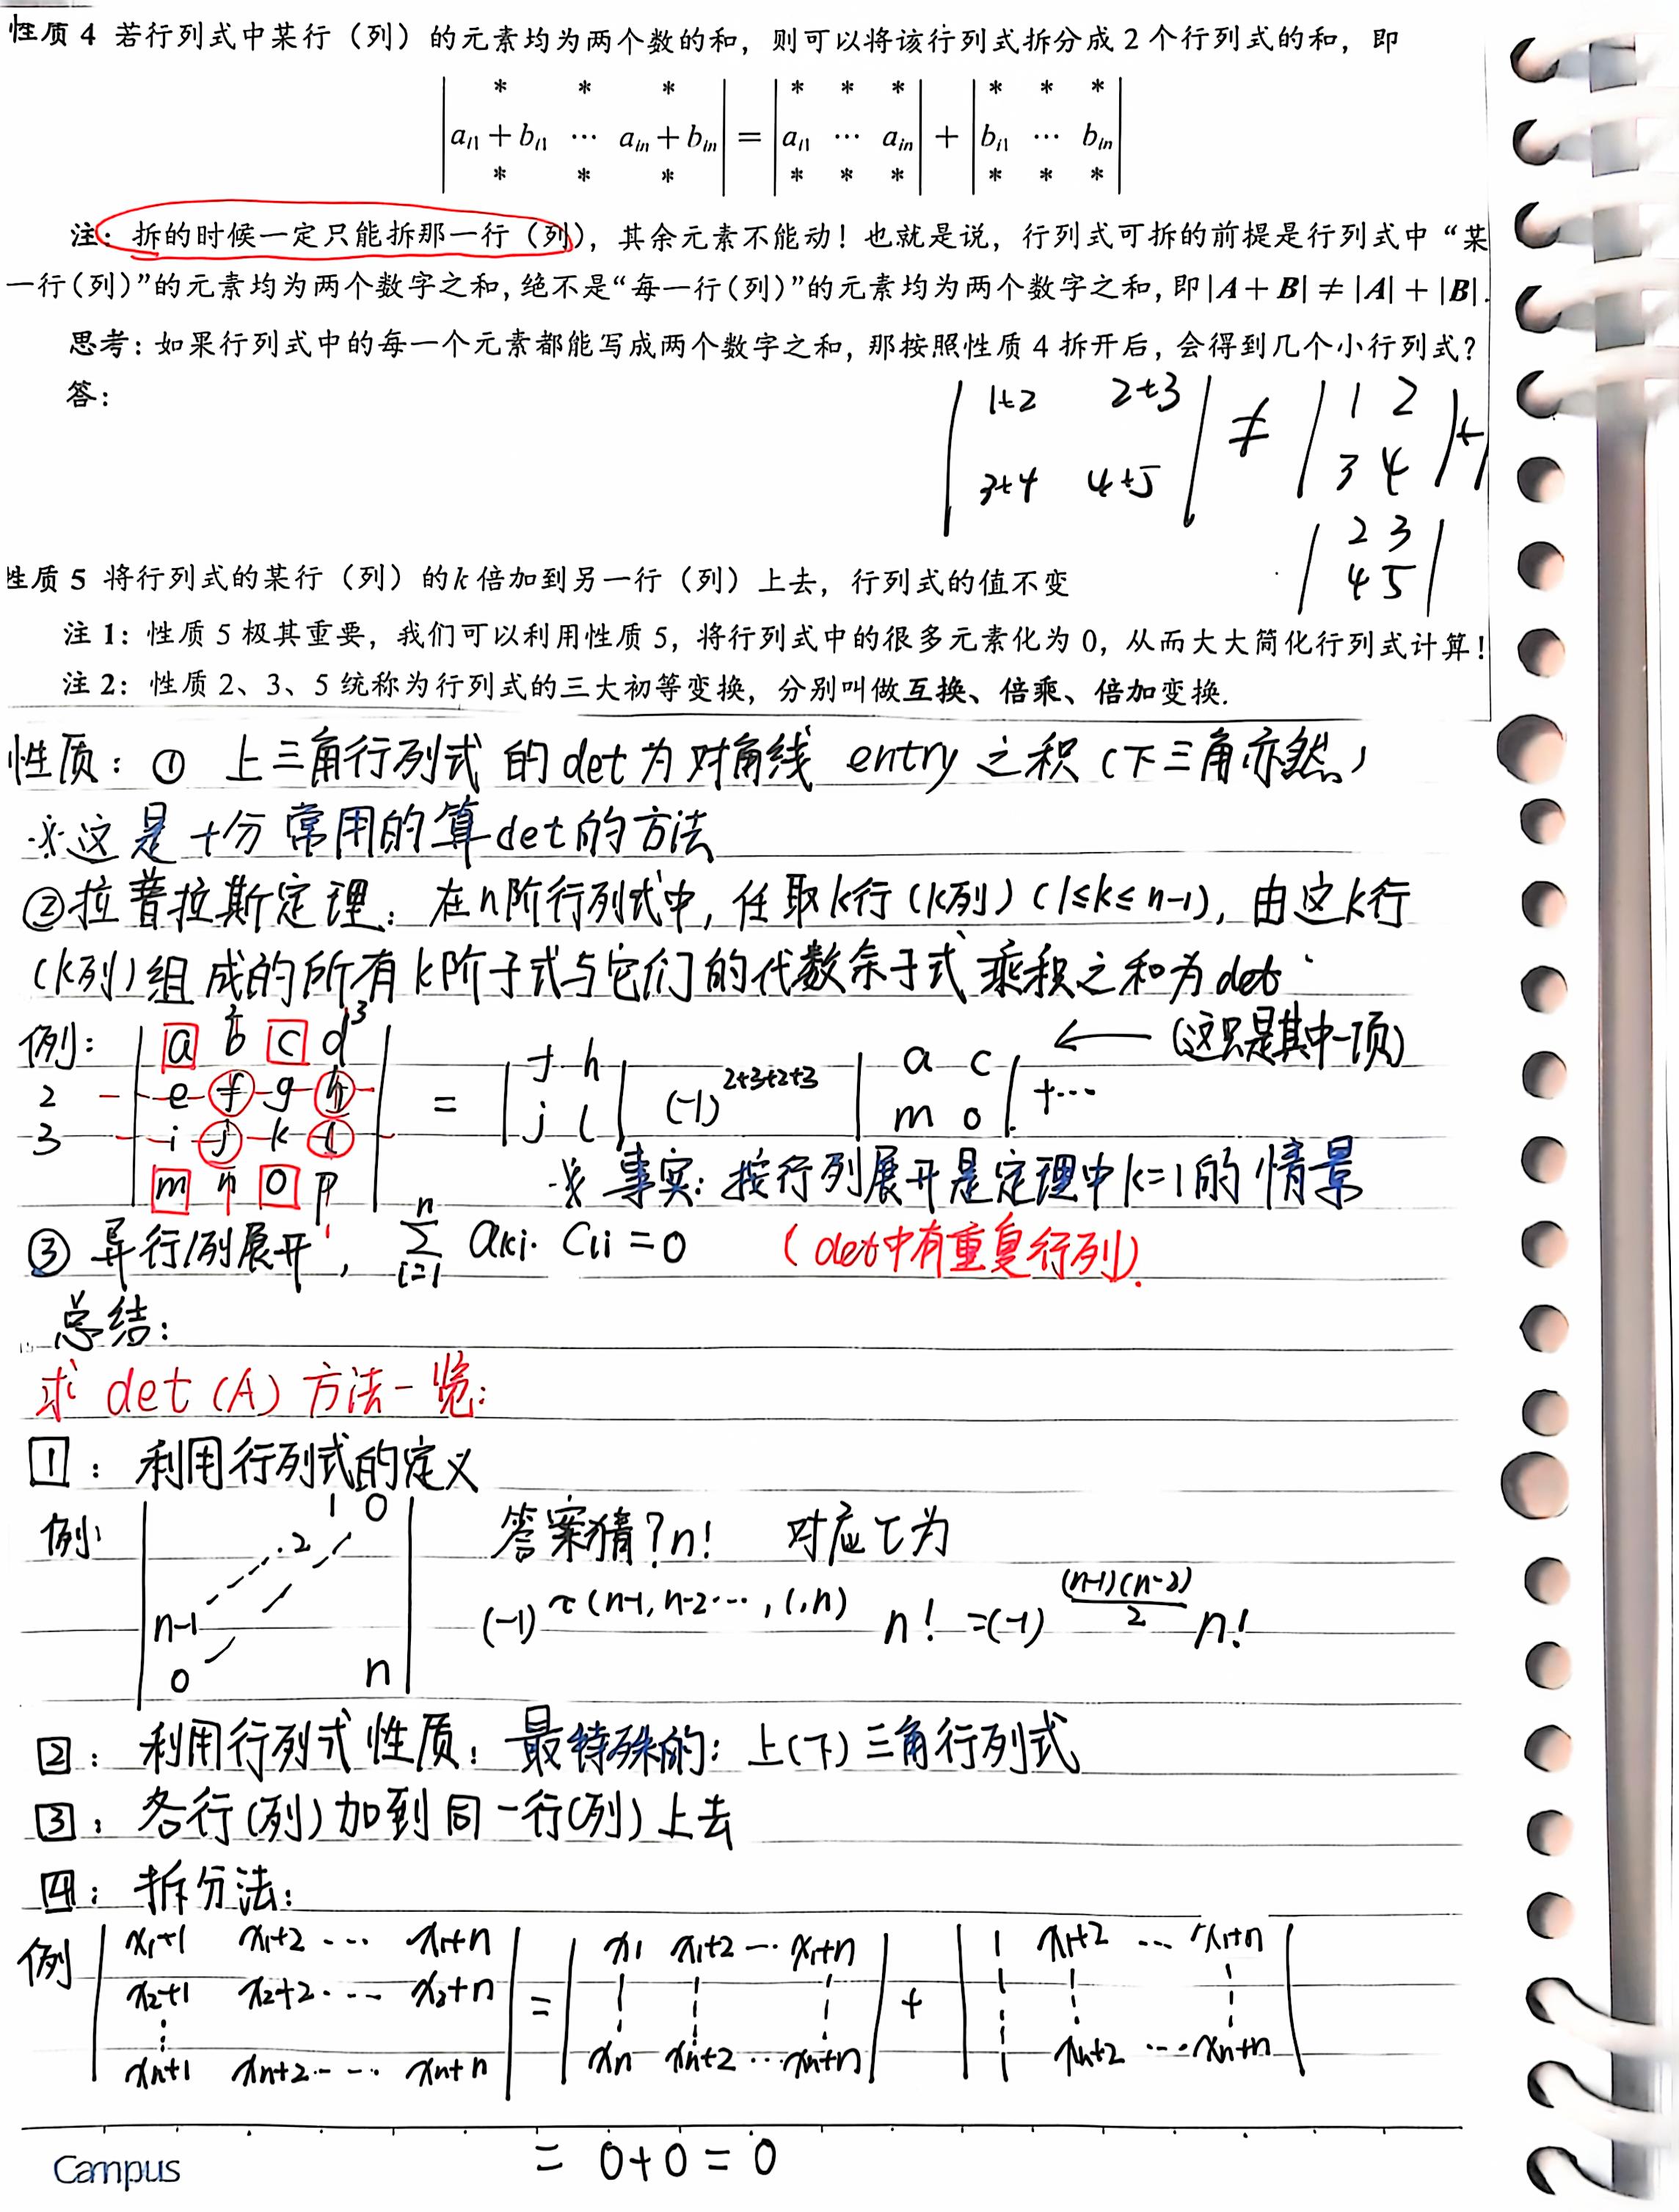 性质 4 若行列式中某行（列）的元素均为两个数的和，则可以将该行列式拆分成 2 个行列式的和，即
* * * * * * * * *
a_{i1} + b_{i1} ⋯ a_{in} + b_{in} = a_{i1} ⋯ a_{in} + b_{i1} ⋯ b_{in}
* * * * * * * * *
注：拆的时候一定只能拆那一行（列），其余元素不能动！也就是说，行列式可拆的前提是行列式中“某
一行(列)”的元素均为两个数字之和，绝不是“每一行(列)”的元素均为两个数字之和，即|A + B| ≠ |A| + |B|.
思考：如果行列式中的每一个元素都能写成两个数字之和，那按照性质 4 拆开后，会得到几个小行列式？
答：
| 1+2 2+3 | ≠ | 1 2 | +
| 3+4 4+5 | | 3 4 |
| 2 3 |
| 4 5 |
性质 5 将行列式的某行（列）的k 倍加到另一行（列）上去，行列式的值不变
注 1：性质 5 极其重要，我们可以利用性质 5，将行列式中的很多元素化为 0，从而大大简化行列式计算！
注 2：性质 2、3、5 统称为行列式的三大初等变换，分别叫做互换、倍乘、倍加变换.
性质：① 上三角行列式 的 det 为 对角线 entry 之积（下三角亦然）
※ 这是十分常用的算det的方法
②拉普拉斯定理：在n阶行列式中，任取k行（k列）（1≤k≤n-1），由这k行
（k列）组成的所有k阶子式与它们的代数余子式乘积之和为det.
2 3
例： | a b c d | = | f h | (-1)^{2+3+2+3} | a c | +⋯ ← （这只是其中一项）
2 | e f g h | | j l | | m o |
3 | i j k l |
| m n o p |
※ 事实：按行列展开是定理中k=1的情景
③ 异行/列展开， \sum_{i=1}^{n} a_{ki}·C_{li} = 0 （det中有重复行列）.
总结：
求 det (A) 方法一览：
1：利用行列式的定义
例： 1 0
2
n-1
0 n
答案猜？n! 对应τ为
(-1)^{τ(n-1,n-2⋯,1,n)} n! =(-1)^{\frac{(n-1)(n-2)}{2}} n!
2：利用行列式性质：最特殊的：上(下)三角行列式
3：各行(列)加到同一行(列)上去
四：拆分法：
例 | x₁+1 x₁+2 ⋯ x₁+n | = | x₁ x₁+2 ⋯ x₁+n | + | 1 x₁+2 ⋯ x₁+n |
| x₂+1 x₂+2 ⋯ x₂+n |
| xn+1 xn+2 ⋯ xn+n | | xn xn+2 ⋯ xn+n | | 1 xn+2 ⋯ xn+n |
= 0+0 = 0
Campus